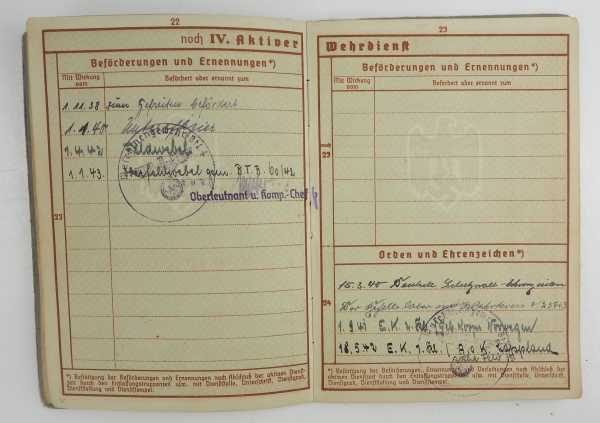 22
noch IV. Aktiver
Beförderungen und Ernennungen*)
Mit Wirkung vom
Befördert oder ernannt zum
1.11.38 zum Gefreiten befördert
1.4.42 Feldwebel
1.1.43. Oberfeldwebel gem. B.T.B. 60/42
Oberleutnant u. Komp.-Chef
23
*) Bestätigung der Beförderungen und Ernennungen nach Abschluß der aktiven Dienst-
zeit durch den Entlassungstruppenteil usw. mit Dienststelle, Unterschrift, Dienstgrad,
Dienststellung und Dienststempel.
23
Wehrdienst
Beförderungen und Ernennungen*)
Mit Wirkung vom
Befördert oder ernannt zum
22
Orden und Ehrenzeichen*)
15.3.40 Deutsche Schutzwall-Ehrenzeichen
24
1.9.41 E.K. 2. Kl. Geb. Korps Norwegen
18.5.42 E.K. 1. Kl. A.O.K. Lappland
*) Bestätigung der Beförderungen, Ernennungen und Verleihungen nach Abschluß der
aktiven Dienstzeit durch den Entlassungstruppenteil usw. mit Dienststelle, Unterschrift,
Dienstgrad, Dienststellung und Dienststempel.